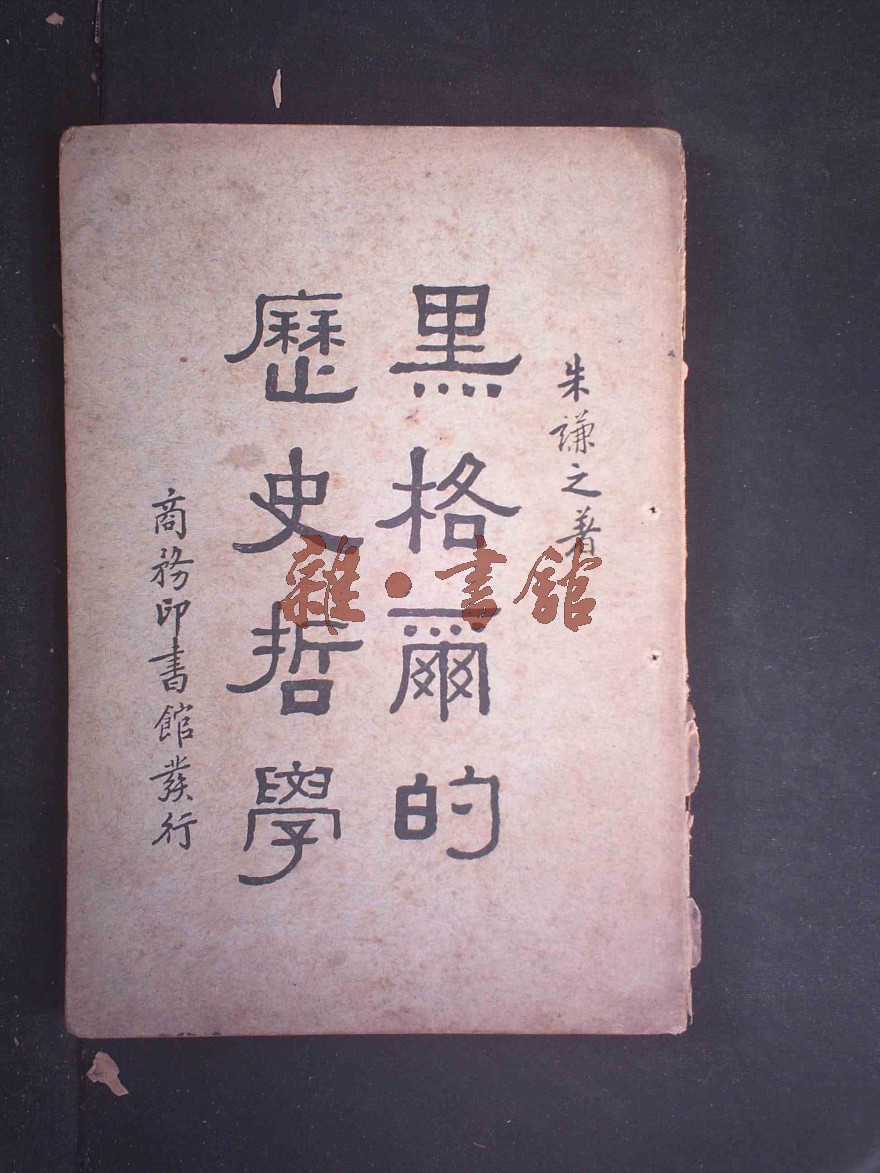 朱謙之著
黑格爾的
歷史哲學
商務印書館發行
雜·書館